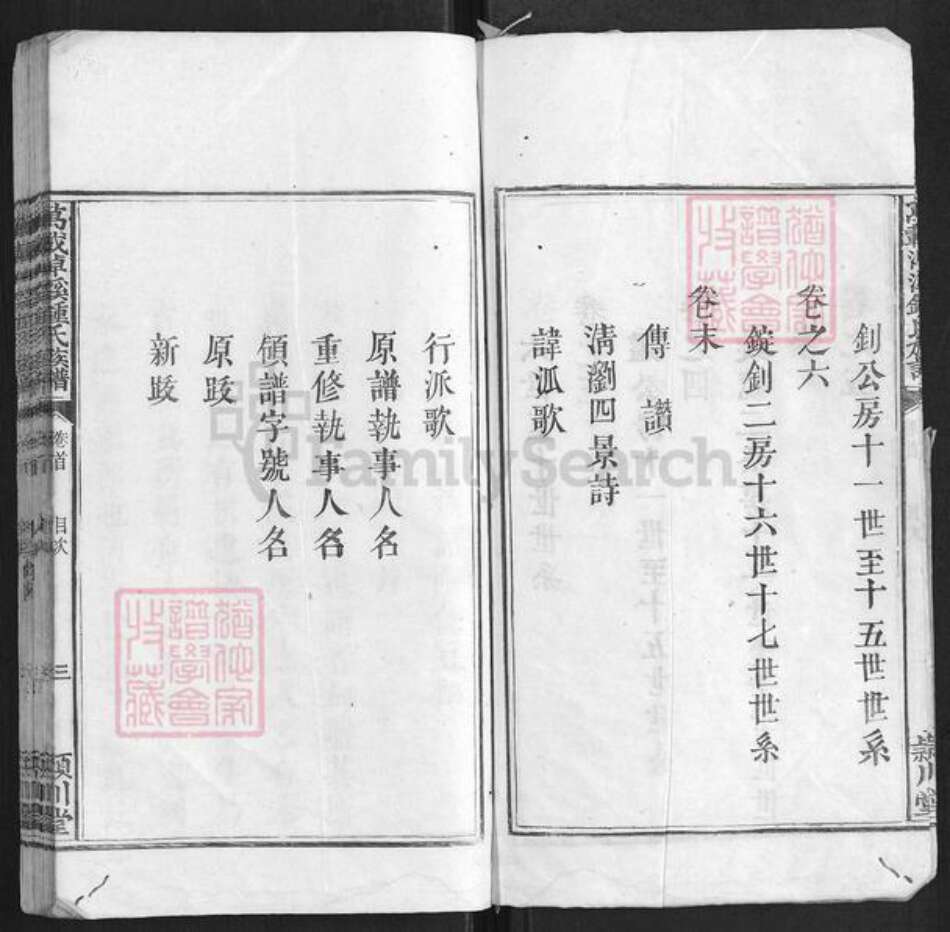 釗公房十一世至十五世世系
卷之六
錠釗二房十六世十七世世系
卷末
傳讃
淸瀏四景詩
諱派歌
行派歌
原譜執事人名
重修執事人名
領譜字號人名
原跋
新跋
鍾氏族譜
卷首
目次
三
潁川堂
譜學會
收藏
FamilySearch